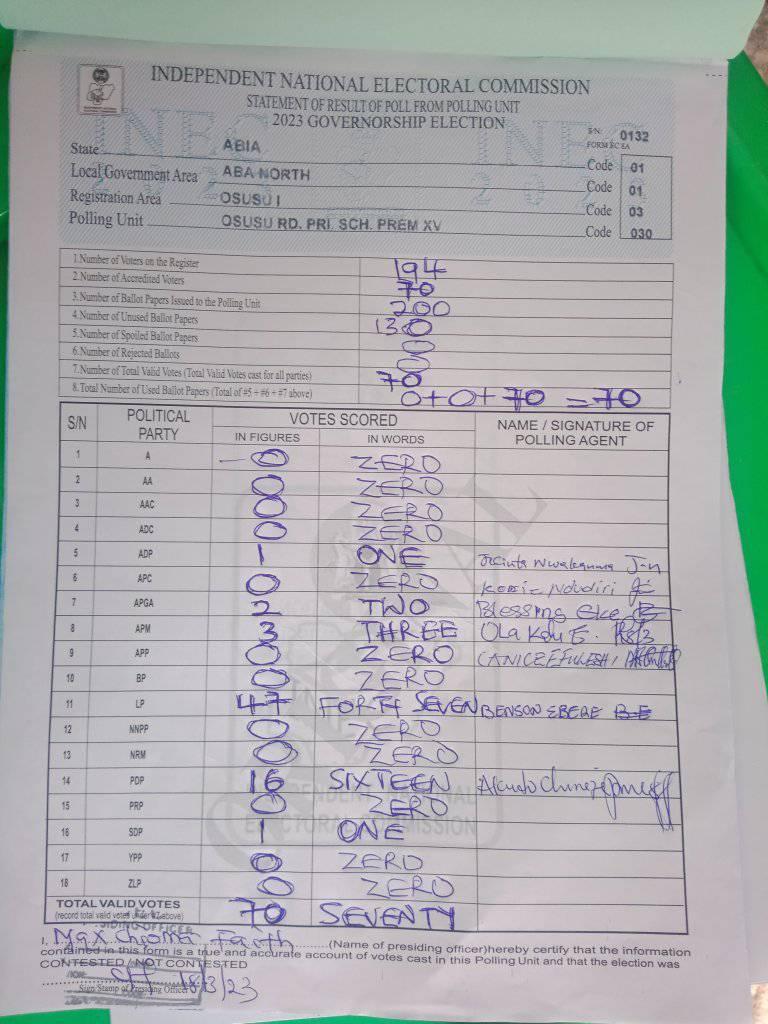 INDEPENDENT NATIONAL ELECTORAL COMMISSION
STATEMENT OF RESULT OF POLL FROM POLLING UNIT
2023 GOVERNORSHIP ELECTION
S/N: 0132
FORM EC 8A
State ABIA Code 01
Local Government Area ABA NORTH Code 01
Registration Area OSUSU I Code 03
Polling Unit OSUSU RD. PRI. SCH. PREM XV Code 030
1.Number of Voters on the Register 194
2.Number of Accredited Voters 70
3.Number of Ballot Papers Issued to the Polling Unit 200
4.Number of Unused Ballot Papers 130
5.Number of Spoiled Ballot Papers 0
6.Number of Rejected Ballots 0
7.Number of Total Valid Votes (Total Valid Votes cast for all parties) 70
8.Total Number of Used Ballot Papers (Total of #5 + #6 + #7 above) 0+0+70 =70
S/N POLITICAL PARTY VOTES SCORED NAME / SIGNATURE OF POLLING AGENT
IN FIGURES IN WORDS
1 A 0 ZERO
2 AA 0 ZERO
3 AAC 0 ZERO
4 ADC 0 ZERO
5 ADP 1 ONE Jacinta
6 APC 0 ZERO Ndudiri
7 APGA 2 TWO Blessing Eke
8 APM 3 THREE Ola Kalu E.
9 APP 0 ZERO
10 BP 0 ZERO
11 LP 47 FORTY SEVEN BENSON EBERE BE
12 NNPP 0 ZERO
13 NRM 0 ZERO
14 PDP 16 SIXTEEN
15 PRP 0 ZERO
16 SDP 1 ONE
17 YPP 0 ZERO
18 ZLP 0 ZERO
TOTAL VALID VOTES 70 SEVENTY
(record total valid votes under #7 above)
I, Faith (Name of presiding officer)hereby certify that the information
contained in this form is a true and accurate account of votes cast in this Polling Unit and that the election was
CONTESTED / NOT CONTESTED
18/3/23
Sign/Stamp of Presiding Officer